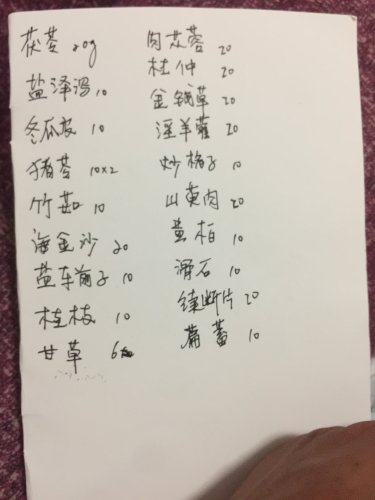 茯苓 20g
盐泽泻 10
冬瓜皮 10
猪苓 10×2
竹茹 10
海金沙 20
盐车前子 10
桂枝 10
甘草 6
肉苁蓉 20
杜仲 20
金钱草 20
淫羊藿 20
炒栀子 10
山萸肉 20
黄柏 10
滑石 10
续断片 20
萹蓄 10